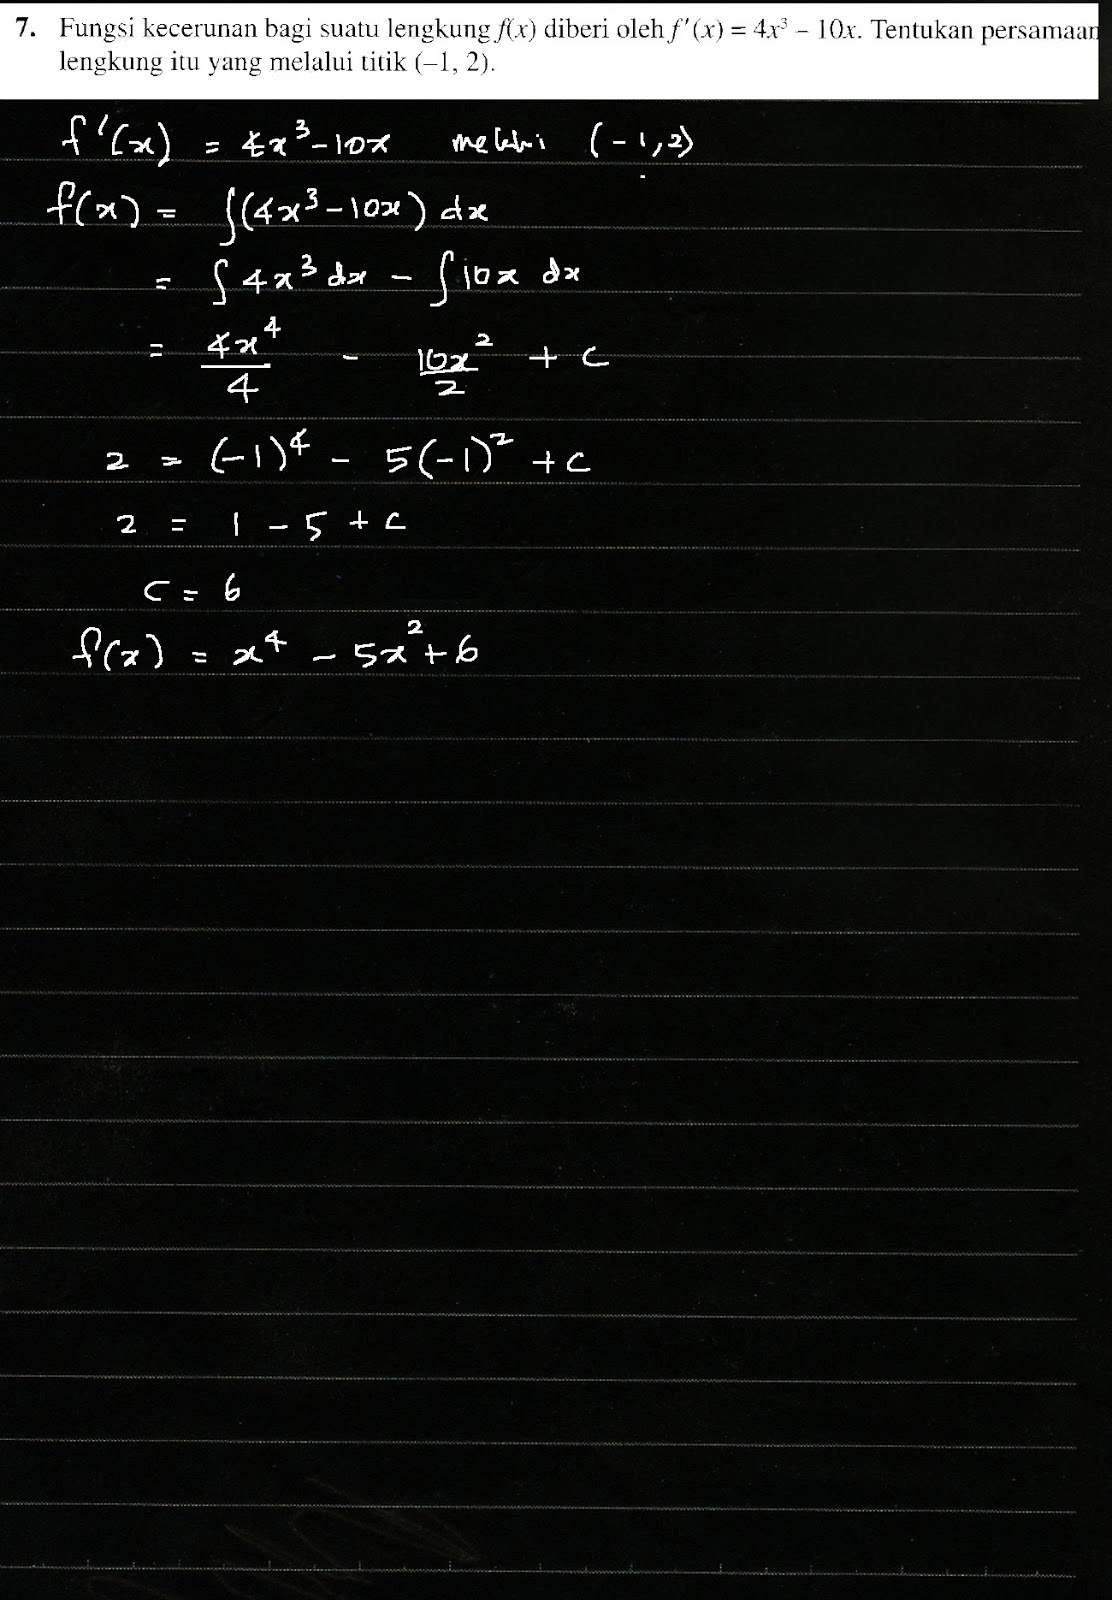 7. Fungsi kecerunan bagi suatu lengkung f(x) diberi oleh f'(x) = 4x³ – 10x. Tentukan persamaan
lengkung itu yang melalui titik (–1, 2).
f'(x) = 4x³ - 10x melalui (-1,2)
f(x) = ∫(4x³ - 10x) dx
= ∫ 4x³ dx - ∫ 10x dx
= 4x⁴/4 - 10x²/2 + c
2 = (-1)⁴ - 5(-1)² + c
2 = 1 - 5 + c
c = 6
f(x) = x⁴ - 5x² + 6